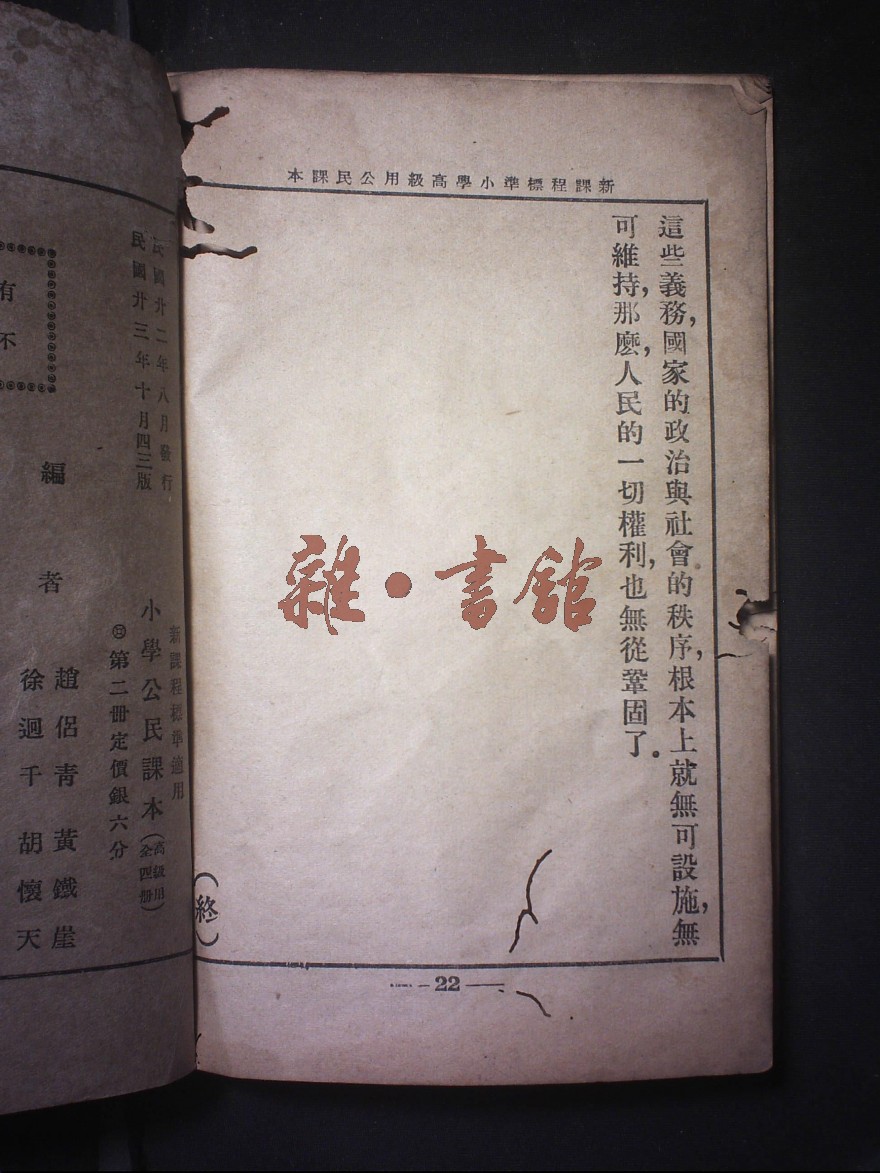 新課程標準小學高級用公民課本
這些義務，國家的政治與社會的秩序，根本上就無可設施，無
可維持，那麽，人民的一切權利，也無從鞏固了。
（終）
— 22 —
雜·書館
新課程標準適用
小學公民課本（高級用 全四册）
㊣第二册定價銀六分
民國廿二年八月發行
民國廿三年十月四三版
編者
趙侶青 黃鐵崖
徐迥千 胡懷天
有
不